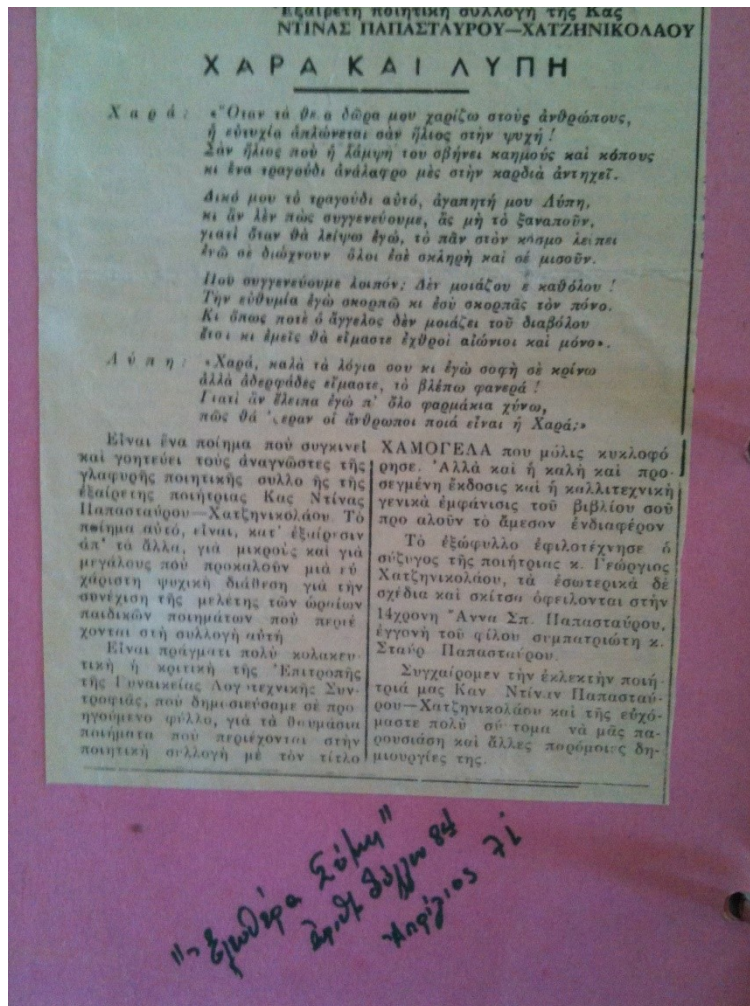 Ἐξαίρετη ποιητική συλλογή τῆς Κας
ΝΤΙΝΑΣ ΠΑΠΑΣΤΑΥΡΟΥ—ΧΑΤΖΗΝΙΚΟΛΑΟΥ
ΧΑΡΑ ΚΑΙ ΛΥΠΗ
Χαρά: «Ὅταν τὰ θε α δῶρα μου χαρίζω στοὺς ἀνθρώπους,
ἡ εὐτυχία ἁπλώνεται σὰν ἥλιος στὴν ψυχή!
Σὰν ἥλιος ποὺ ἡ λάμψη του σβήνει καημοὺς καὶ κόπους
κι ἕνα τραγούδι ἀνάλαφρο μὲς στὴν καρδιὰ ἀντηχεῖ.
Δικό μου τὸ τραγούδι αὐτό, ἀγαπητή μου Λύπη,
κι ἂν λὲν πὼς συγγενεύουμε, ἂς μὴ τὸ ξαναποῦν,
γιατὶ ὅταν θὰ λείψω ἐγώ, τὸ πᾶν στὸν κόσμο λείπει
ἐνῶ σὲ διώχνουν ὅλοι ἐσὲ σκληρὴ καὶ σὲ μισοῦν.
Ποῦ συγγενεύουμε λοιπόν; Δὲν μοιάζου ε καθόλου!
Τὴν εὐθυμία ἐγὼ σκορπῶ κι ἐσὺ σκορπᾶς τὸν πόνο.
Κι ὅπως ποτὲ ὁ ἄγγελος δὲν μοιάζει τοῦ διαβόλου
ἔτσι κι ἐμεῖς θὰ εἴμαστε ἐχθροὶ αἰώνιοι καὶ μόνο».
Λύπη: «Χαρά, καλὰ τὰ λόγια σου κι ἐγὼ σοφὴ σὲ κρίνω
ἀλλὰ ἀδερφάδες εἴμαστε, τὸ βλέπω φανερά!
Γιατὶ ἂν ἔλειπα ἐγὼ π' ὅλο φαρμάκια χύνω,
πῶς θὰ 'ξεραν οἱ ἄνθρωποι ποιὰ εἶναι ἡ Χαρά;»
Εἶναι ἕνα ποίημα ποὺ συγκινεῖ
καὶ γοητεύει τοὺς ἀναγνῶστες τῆς
γλαφυρῆς ποιητικῆς συλλο ῆς τῆς
ἐξαίρετης ποιήτριας Κας Ντίνας
Παπασταύρου—Χατζηνικολάου. Τὸ
ποίημα αὐτό, εἶναι, κατ' ἐξαίρεσιν
ἀπ' τὰ ἄλλα, γιὰ μικροὺς καὶ γιὰ
μεγάλους ποὺ προκαλοῦν μιὰ εὐ
χάριστη ψυχικὴ διάθεση γιὰ τὴν
συνέχιση τῆς μελέτης τῶν ὡραίων
παιδικῶν ποιημάτων ποὺ περιέ
χονται στὴ συλλογὴ αὐτή
Εἶναι πράγματι πολὺ κολακευ
τικὴ ἡ κριτικὴ τῆς Ἐπιτροπῆς
τῆς Γυναικείας Λογοτεχνικῆς Συν
τροφιᾶς, ποὺ δημοσιεύσαμε σὲ προ
ηγούμενο φύλλο, γιὰ τὰ θαυμάσια
ποιήματα ποὺ περιέχονται στὴν
ποιητικὴ συλλογὴ μὲ τὸν τίτλο
ΧΑΜΟΓΕΛΑ ποὺ μόλις κυκλοφό
ρησε. Ἀλλὰ καὶ ἡ καλὴ καὶ προ-
σεγμένη ἔκδοσις καὶ ἡ καλλιτεχνικὴ
γενικὰ ἐμφάνισις τοῦ βιβλίου σοῦ
προ αλοῦν τὸ ἄμεσον ἐνδιαφέρον
Τὸ ἐξώφυλλο ἐφιλοτέχνησε ὁ
σύζυγος τῆς ποιήτριας κ. Γεώργιος
Χατζηνικολάου, τὰ ἐσωτερικὰ δὲ
σχέδια καὶ σκίτσα ὀφείλονται στὴν
14χρονη Ἄννα Σπ. Παπασταύρου,
ἐγγονὴ τοῦ φίλου συμπατριώτη κ.
Σταῦρ Παπασταύρου.
Συγχαίρομεν τὴν ἐκλεκτὴν ποιή-
τριά μας Καν Ντίναν Παπασταύ-
ρου—Χατζηνικολάου καὶ τῆς εὐχό-
μαστε πολὺ σύντομα νὰ μᾶς πα-
ρουσιάση καὶ ἄλλες παρόμοιες δη-
μιουργίες της.
"Ἐλευθέρα Σύμη"
ἀριθ. φύλλου 84
Ἀπρίλιος 71